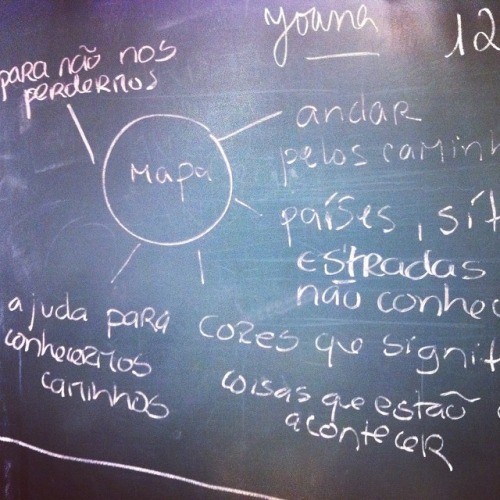 Yoana
12
para não nos
perdermos
mapa
andar
pelos
países,
estradas
não
ajuda para
conhecermos
caminhos
cores que
coisas que estão
acontecer